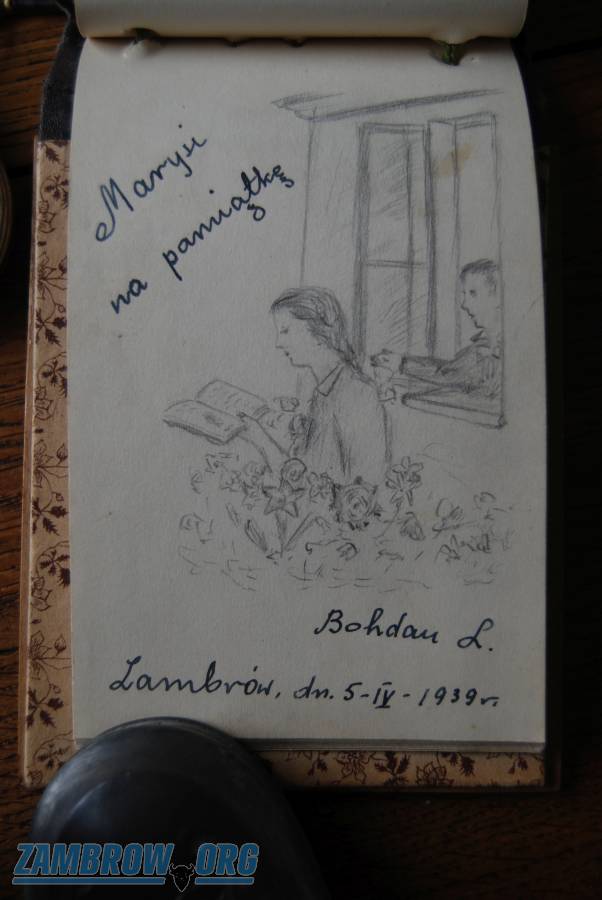 Marysi
na pamiątkę
Bohdan L.
Zambrów, dn. 5-IV-1939r.
ZAMBROW.ORG